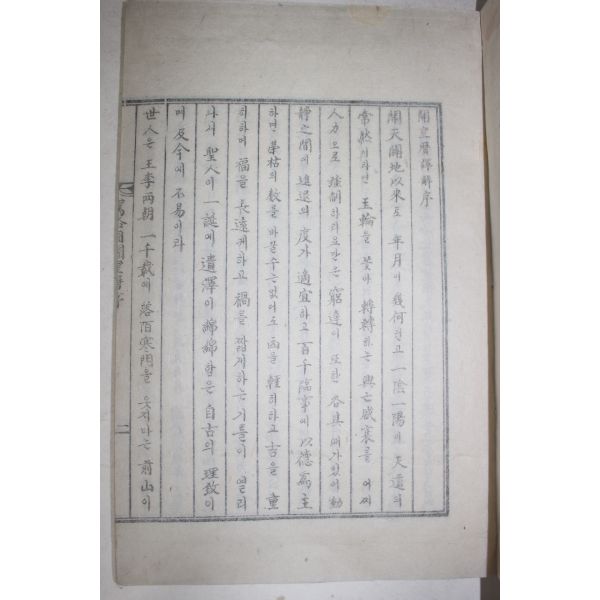 開皇曆譯解序
闢天開地以來로 年月이 幾何런고 一陰一陽의 天道의
常然이라만 王輪을 쫓아 轉轉하는 興亡盛衰를 어찌
人力으로 하리요만은 窮達이 또한 各其 때가 있어 動
靜之間에 進退의 度가 適宜하고 百千臨事에 以德爲主
하면 榮枯의 數를 바꿀 수는 없어도 凶을 輕히 하고 吉을 重
히 하며 福을 長遠케 하고 禍를 짧게 하는 기틀이 열리
나니 聖人이 一誕에 遺澤이 綿綿함은 自古의 理致이
며 及今에 不易이라
世人은 王李両朝 一千載에 落陌寒門을 웃지다는 前山이